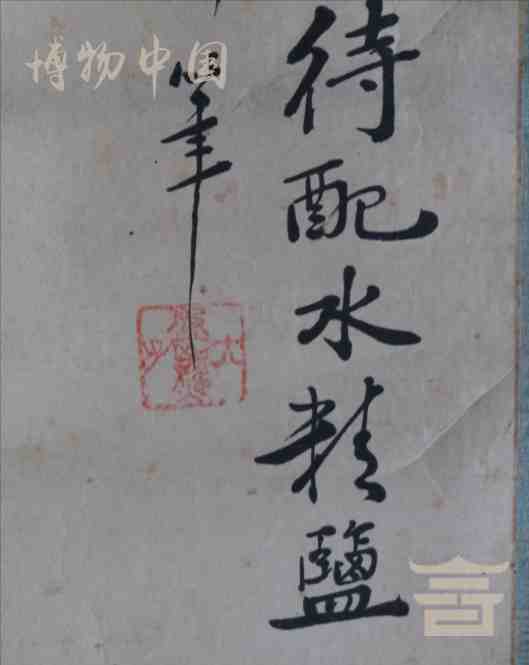 待配水精鹽
筆
博物中国